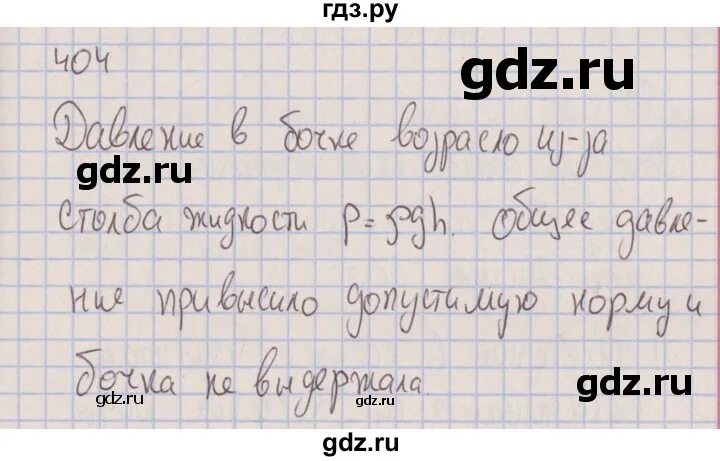 гдз.ру
404
gdz.ru
Давление в бочке возрасло из-за
gdz.ru
столба жидкости p=ρgh. Общее давле-
ние привысило допустимую норму и
бочка не выдержала.
gdz.ru
gdz.ru
gdz.ru
gdz.ru